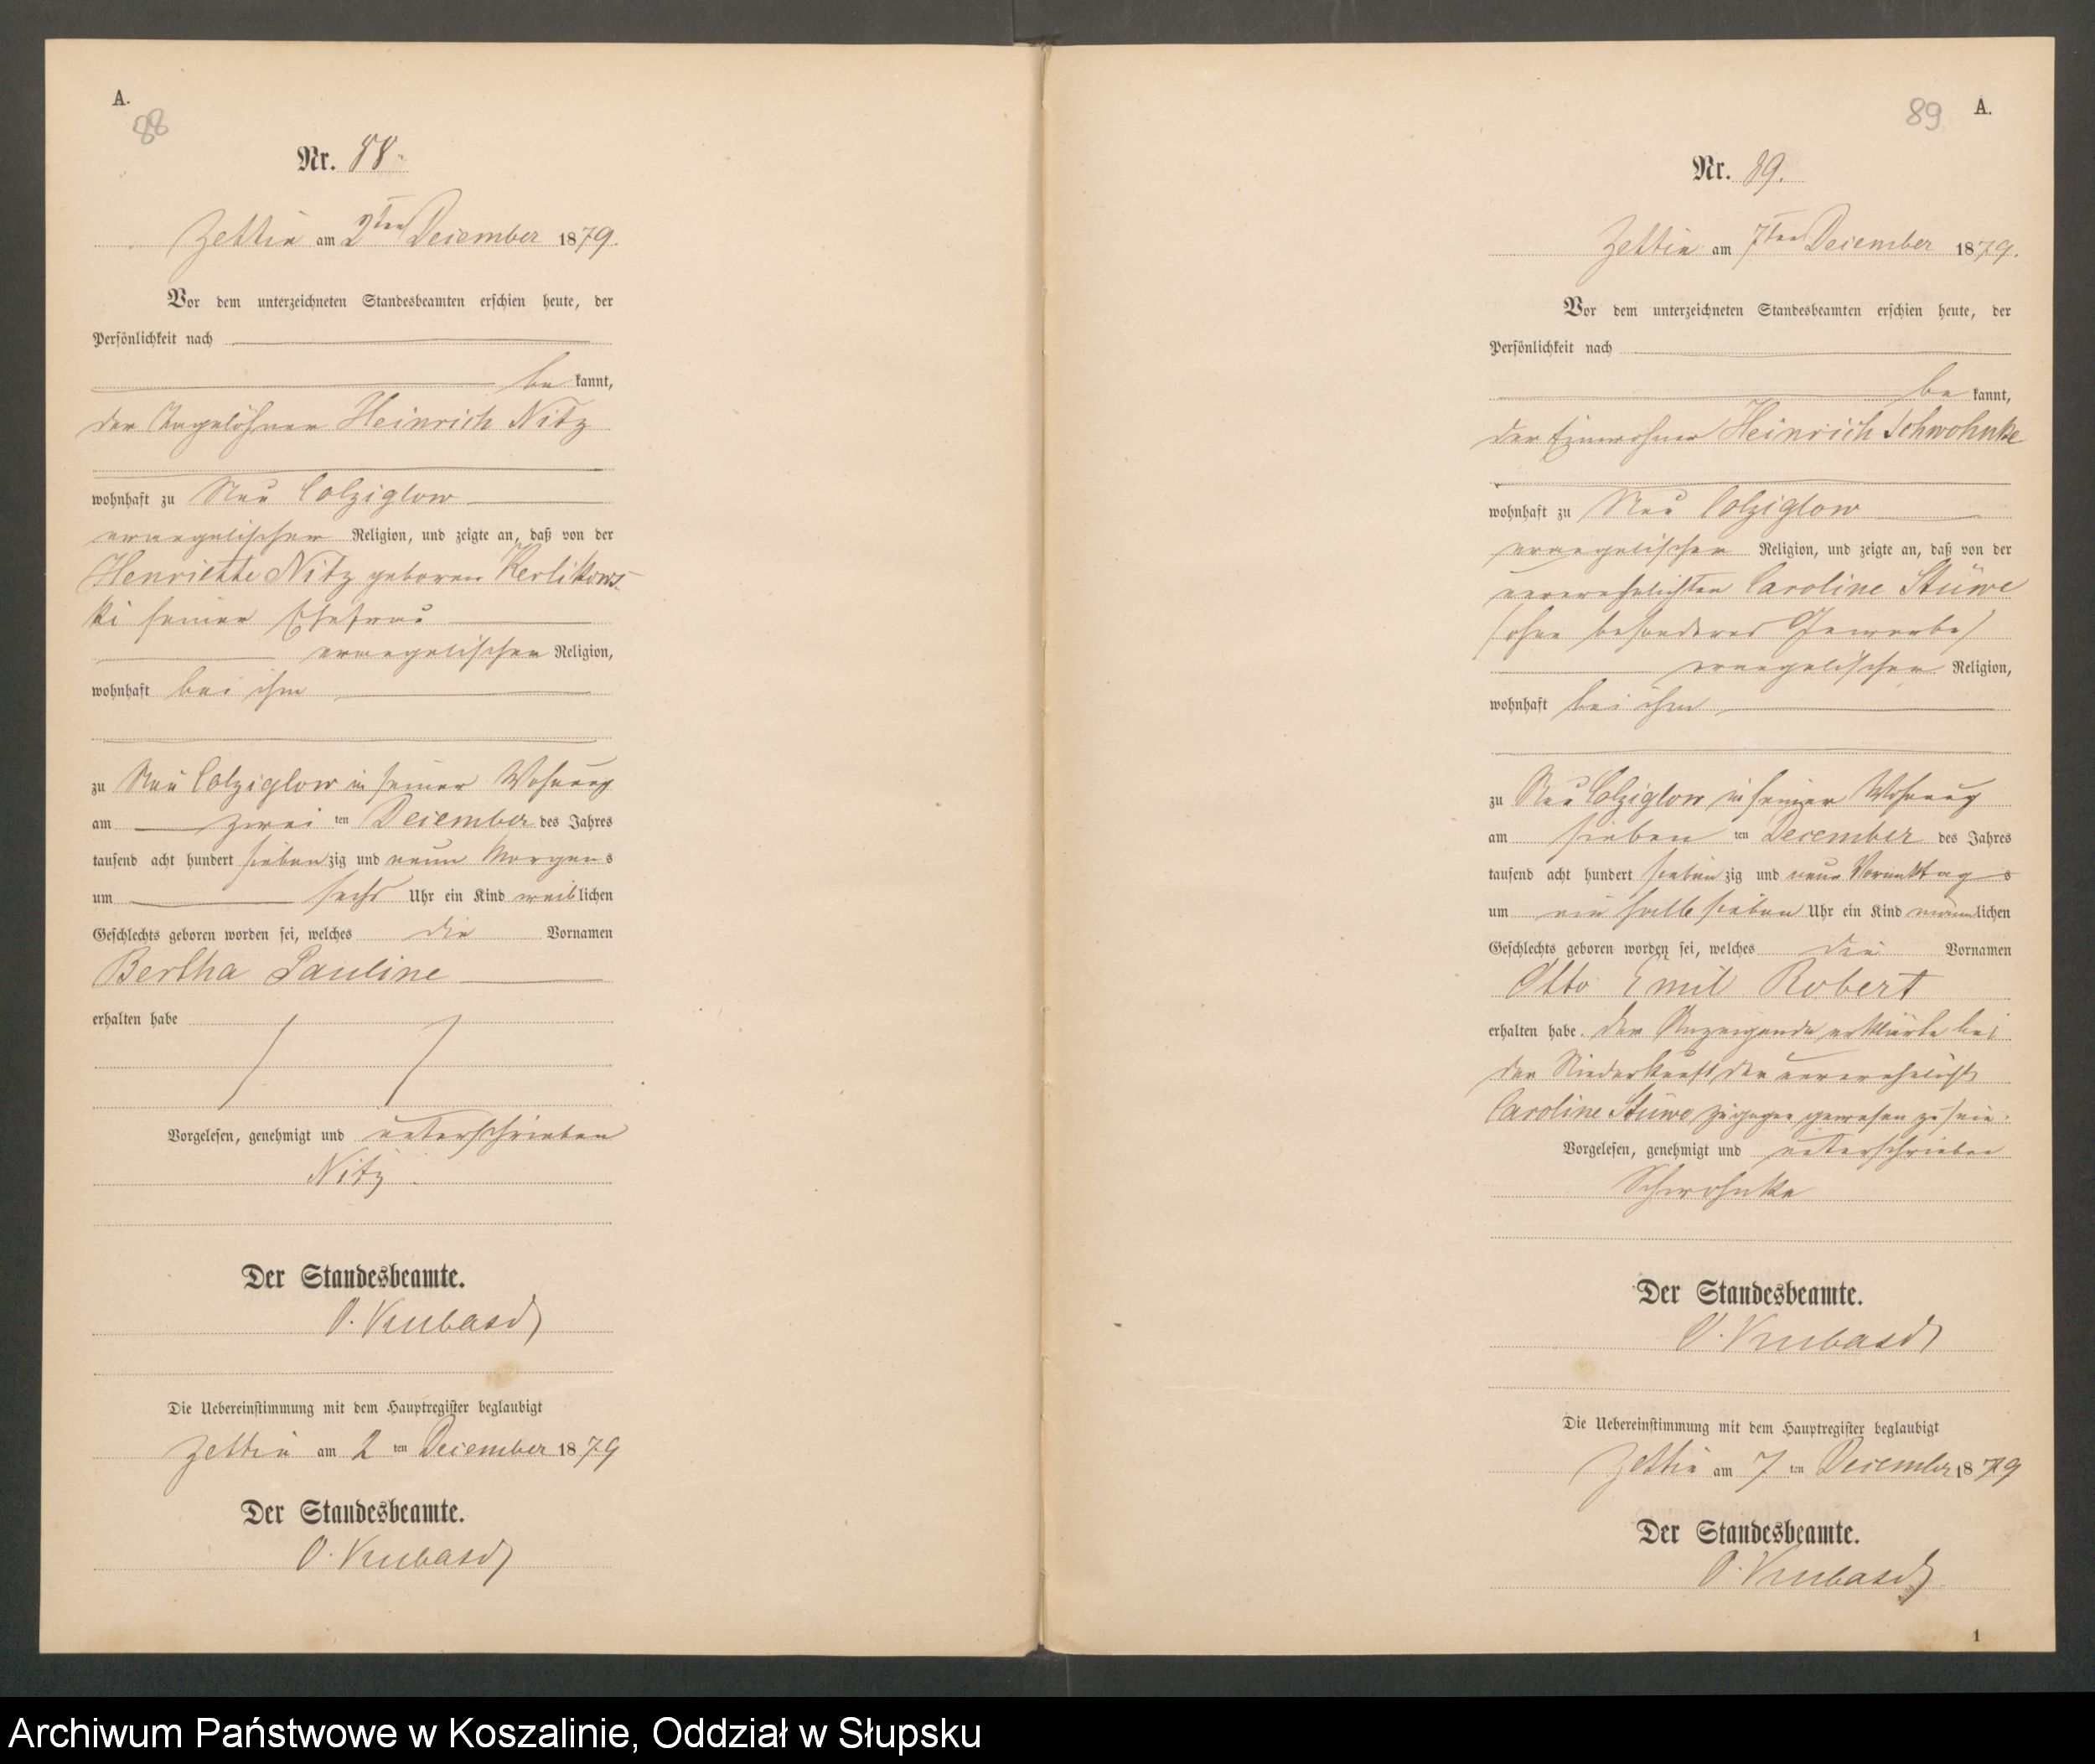 A.
88
Nr. 88.
Zettin am 2ten December 1879.
Vor dem unterzeichneten Standesbeamten erschien heute, der
Persönlichkeit nach
be kannt,
der Tagelöhner Heinrich Nitz
wohnhaft zu Neu Colziglow
evangelischer Religion, und zeigte an, daß von der
Henriette Nitz geborene Kerlikows-
ki seiner Ehefrau
evangelischer Religion,
wohnhaft bei ihm
zu Neu Colziglow in seiner Wohnung
am zwei ten December des Jahres
tausend acht hundert sieben zig und neun Morgens
um sechs Uhr ein Kind weiblichen
Geschlechts geboren worden sei, welches die Vornamen
Bertha Pauline
erhalten habe
Vorgelesen, genehmigt und unterschrieben
Nitz
Der Standesbeamte.
O.
Die Uebereinstimmung mit dem Hauptregister beglaubigt
Zettin am 2 ten December 1879
Der Standesbeamte.
O.
89 A.
Nr. 89.
Zettin am 7ten December 1879.
Vor dem unterzeichneten Standesbeamten erschien heute, der
Persönlichkeit nach
be kannt,
der Einwohner Heinrich Schwohnke
wohnhaft zu Neu Colziglow
evangelischer Religion, und zeigte an, daß von der
unverehelichten Caroline Stüwe
(ohne besonderes Gewerbe)
evangelischer Religion,
wohnhaft bei ihm
zu Neu Colziglow in seiner Wohnung
am sieben ten December des Jahres
tausend acht hundert sieben zig und neun Vormittags
um ein halb sieben Uhr ein Kind männlichen
Geschlechts geboren worden sei, welches die Vornamen
Otto Emil Robert
erhalten habe. Der Anzeigende erklärte bei
der Niederkunft der unverehelicht
Caroline Stüwe zugegen gewesen zu sein.
Vorgelesen, genehmigt und unterschrieben
Schwohnke
Der Standesbeamte.
O.
Die Uebereinstimmung mit dem Hauptregister beglaubigt
Zettin am 7 ten December 1879
Der Standesbeamte.
O.
1
Archiwum Państwowe w Koszalinie, Oddział w Słupsku